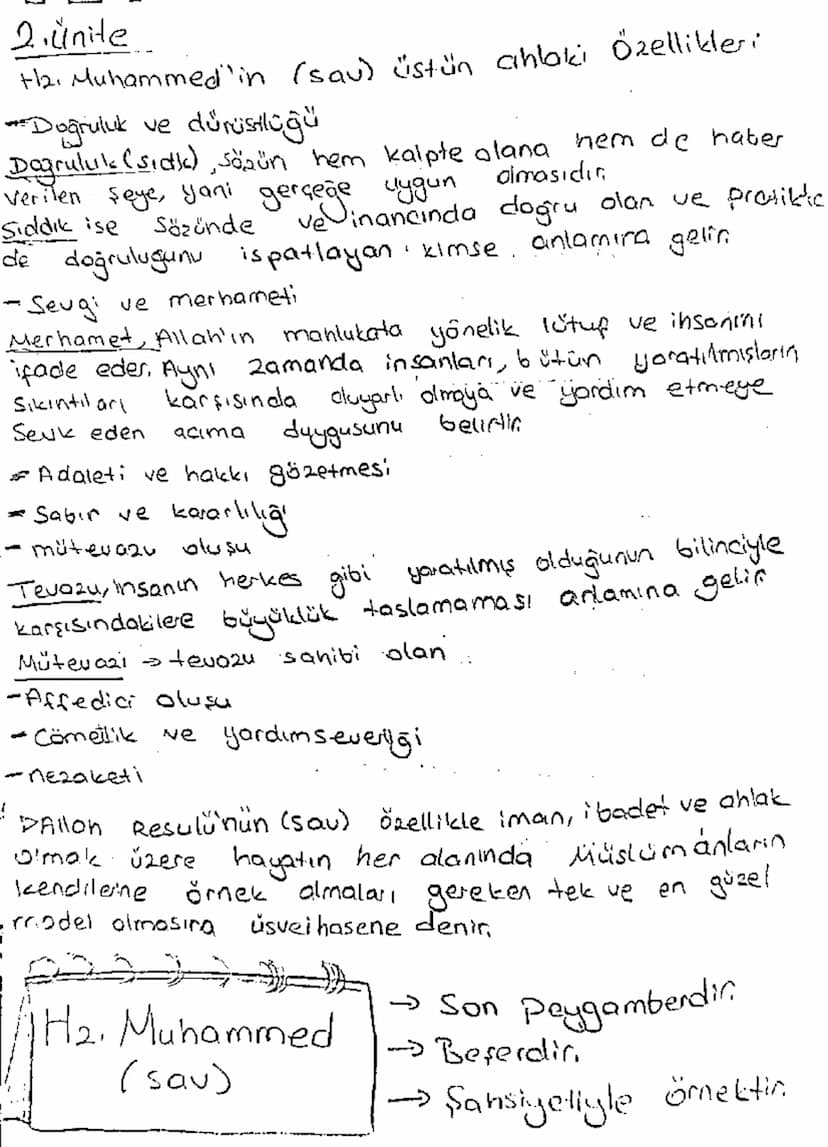 2.ünite
Hz. Muhammed'in (sav) üstün ahlaki özellikleri
- Doğruluk ve dürüstlüğü
Doğruluk (sıdk), sözün hem kalpte olana hem de haber
verilen şeye, yani gerçeğe uygun olmasıdır.
Sıddık ise sözünde ve inancında doğru olan ve pratikte
de doğruluğunu ispatlayan kimse anlamına gelir.
- Sevgi ve merhameti
Merhamet, Allah'ın mahlukata yönelik lütuf ve ihsanını
ifade eder. Aynı zamanda insanları, bütün yaratılmışların
sıkıntıları karşısında duyarlı olmaya ve yardım etmeye
sevk eden acıma duygusunu belirtir.
- Adaleti ve hakkı gözetmesi
- Sabır ve kararlılığı
- mütevazu oluşu
Tevazu, insanın herkes gibi yaratılmış olduğunun bilinciyle
karşısındakilere büyüklük taslamaması anlamına gelir
Mütevazi → tevazu sahibi olan
- Affedici oluşu
- Cömertlik ve yardımseverliği
- nezaketi
Allah Resulü'nün (sav) özellikle iman, ibadet ve ahlak
olmak üzere hayatın her alanında Müslümanların
kendilerine örnek almaları gereken tek ve en güzel
model olmasına üsvei hasene denir.
Hz. Muhammed
(sav)
→ Son peygamberdir.
→ Beşerdir.
→ Şahsiyetiyle örnektir.